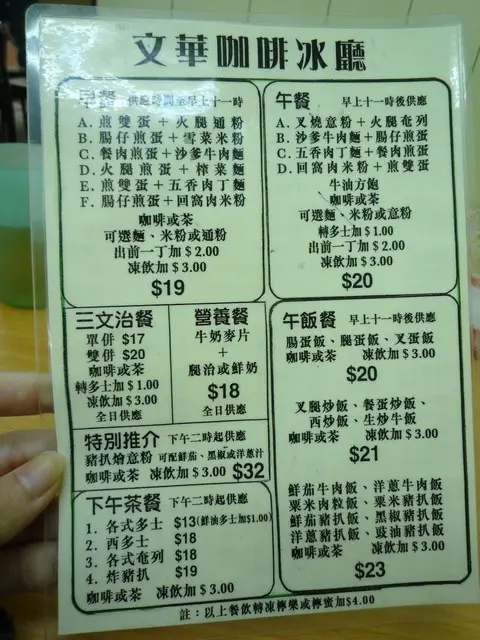 文華咖啡冰廳
早餐 供應時間至早上十一時
A. 煎雙蛋+火腿通粉
B. 腸仔煎蛋+雪菜米粉
C. 餐肉煎蛋+沙爹牛肉麵
D. 火腿煎蛋+榨菜麵
E. 煎雙蛋+五香肉丁麵
F. 腸仔煎蛋+回窩肉米粉
咖啡或茶
可選麵、米粉或通粉
出前一丁加$2.00
凍飲加$3.00
$19
午餐 早上十一時後供應
A. 叉燒意粉+火腿奄列
B. 沙爹牛肉麵+腸仔煎蛋
C. 五香肉丁麵+餐肉煎蛋
D. 回窩肉米粉+煎雙蛋
牛油方飽
咖啡或茶
可選麵、米粉或意粉
轉多士加$1.00
出前一丁加$2.00
凍飲加$3.00
$20
三文治餐
單併 $17
雙併 $20
咖啡或茶
轉多士加$1.00
凍飲加$3.00
全日供應
營養餐
牛奶麥片
+
腿治或鮮奶
$18
全日供應
午飯餐 早上十一時後供應
腸蛋飯、腿蛋飯、叉蛋飯
咖啡或茶 凍飲加$3.00
$20
叉腿炒飯、餐蛋炒飯、
西炒飯、生炒牛飯
咖啡或茶 凍飲加$3.00
$21
鮮茄牛肉飯、洋蔥牛肉飯
粟米肉粒飯、粟米豬扒飯
鮮茄豬扒飯、黑椒豬扒飯
洋蔥豬扒飯、豉油豬扒飯
咖啡或茶 凍飲加$3.00
$23
特別推介 下午二時起供應
豬扒燴意粉 可配鮮茄、黑椒或洋蔥汁
咖啡或茶 凍飲加$3.00 $32
下午茶餐 下午二時起供應
1. 各式多士 $13(鮮油多士加$1.00)
2. 西多士 $18
3. 各式奄列 $18
4. 炸豬扒 $19
咖啡或茶 凍飲加$3.00
註：以上餐飲轉凍檸樂或檸蜜加$4.00